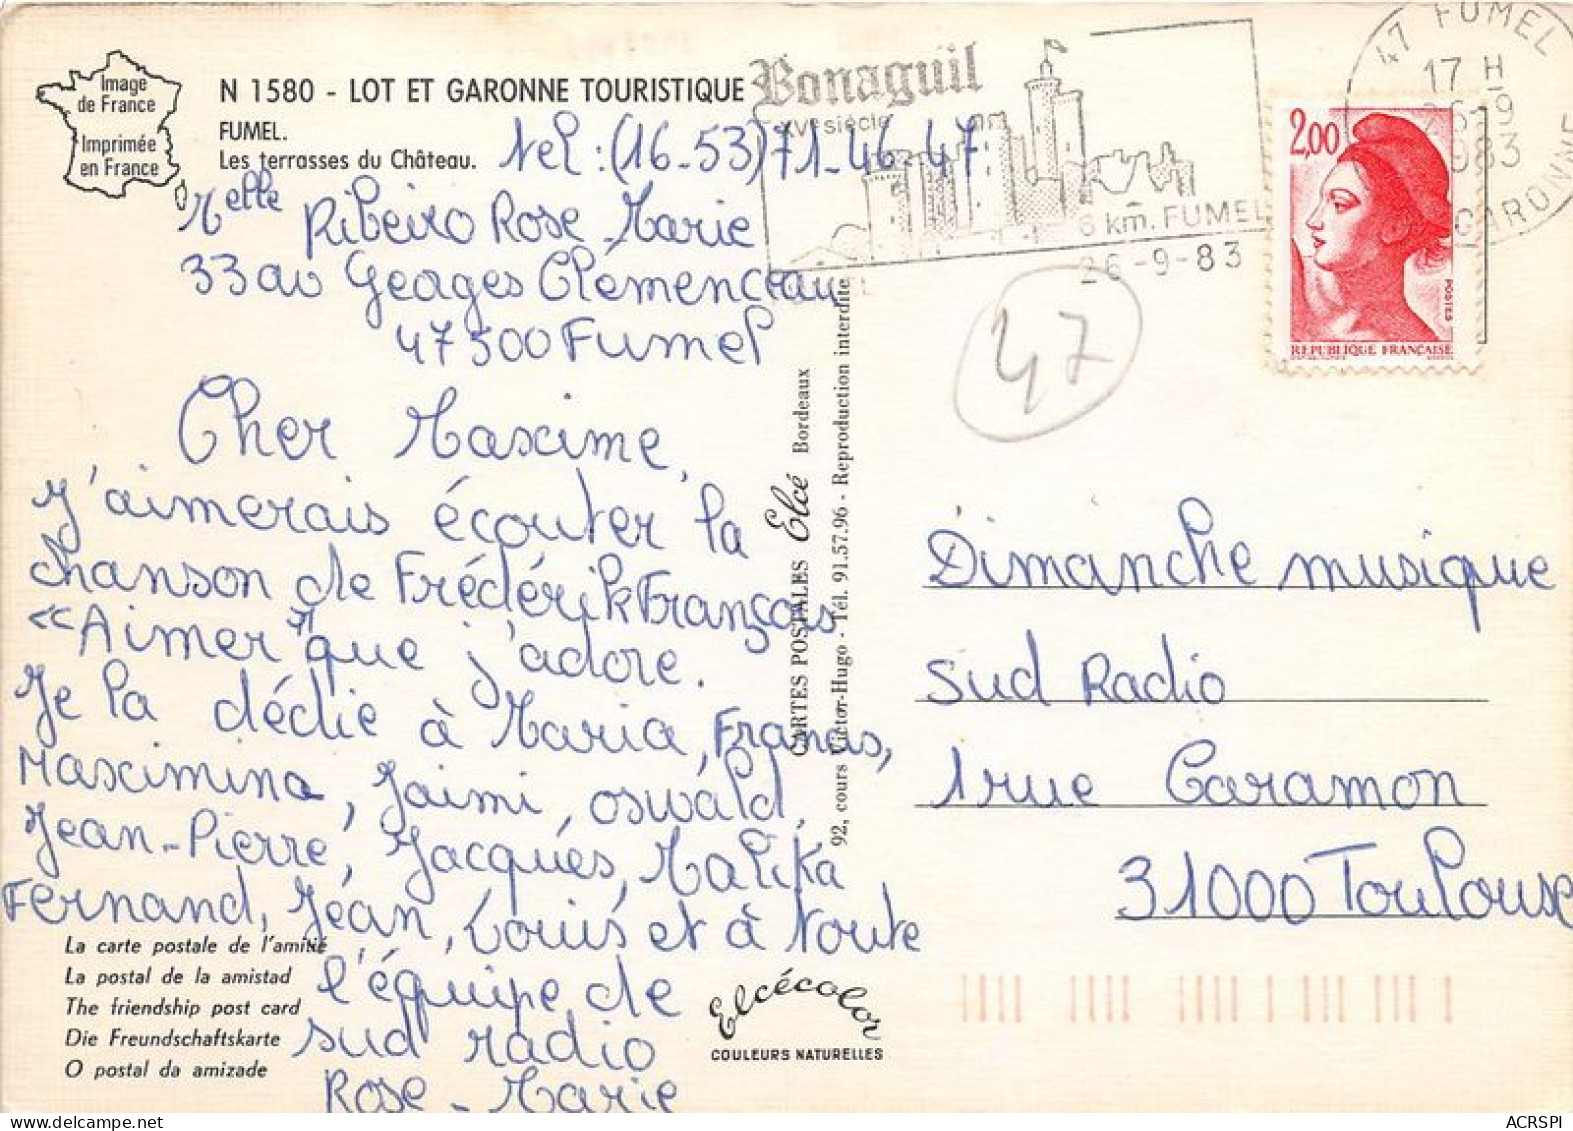 Image
de France
Imprimée
en France
N 1580 - LOT ET GARONNE TOURISTIQUE
FUMEL.
Les terrasses du Château.
Tel : (16-53) 71-46-47
Melle Ribeiro Rose-Marie
33 av Geages Clémenceau
47500 Fumel
Cher Maxime,
J'aimerais écouter la
chanson de Frédérik François
"Aimer" que j'adore.
Je la dédie à Maria, Francis,
Maximina, Jaimi, oswald,
Jean-Pierre, Jacques, Malika,
Fernand, Jean, Louis et à toute
l'équipe de
sud radio
Rose-Marie
La carte postale de l'amitié
La postal de la amistad
The friendship post card
Die Freundschaftskarte
O postal da amizade
CARTES POSTALES Elcé Bordeaux
92, cours Victor-Hugo - Tél. 91.57.96 - Reproduction interdite
Elcécolor
COULEURS NATURELLES
Bonaguil
XVe siècle
6 km. FUMEL
26-9-83
47 FUMEL
17 H
26-9
1983
GARONNE
2,00
POSTES
REPUBLIQUE FRANÇAISE
47
Dimanche musique
Sud Radio
1 rue Caramon
31000 Toulouse
ACRSPI